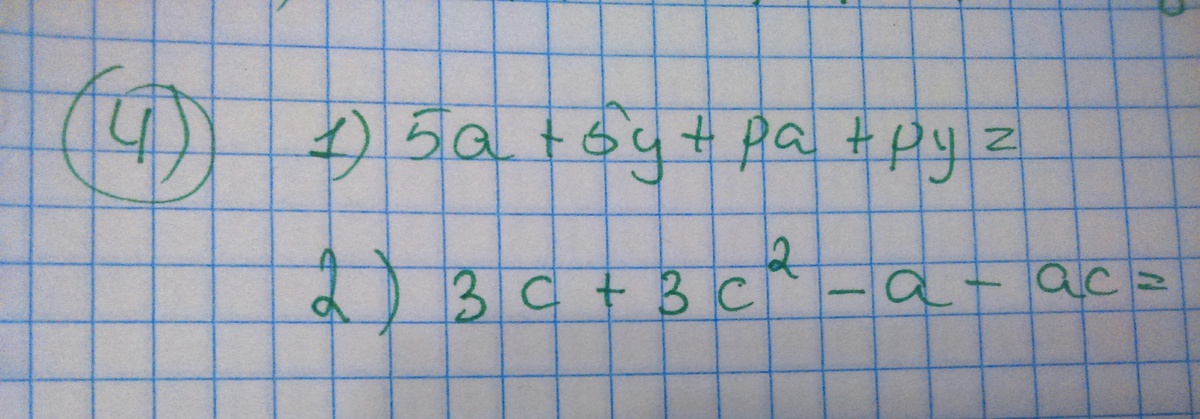 4) 1) 5a + 5y + pa + py =
2) 3c + 3c² - a - ac =